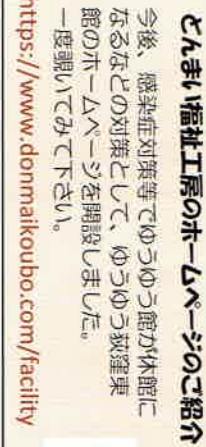 どんまい福祉工房のホームページのご紹介
今後、感染症対策等でゆうゆう館が休館に
なるなどの対策として、ゆうゆう荻窪東
館のホームページを開設しました。
一度覗いてみて下さい。
https://www.donmaikoubo.com/facility